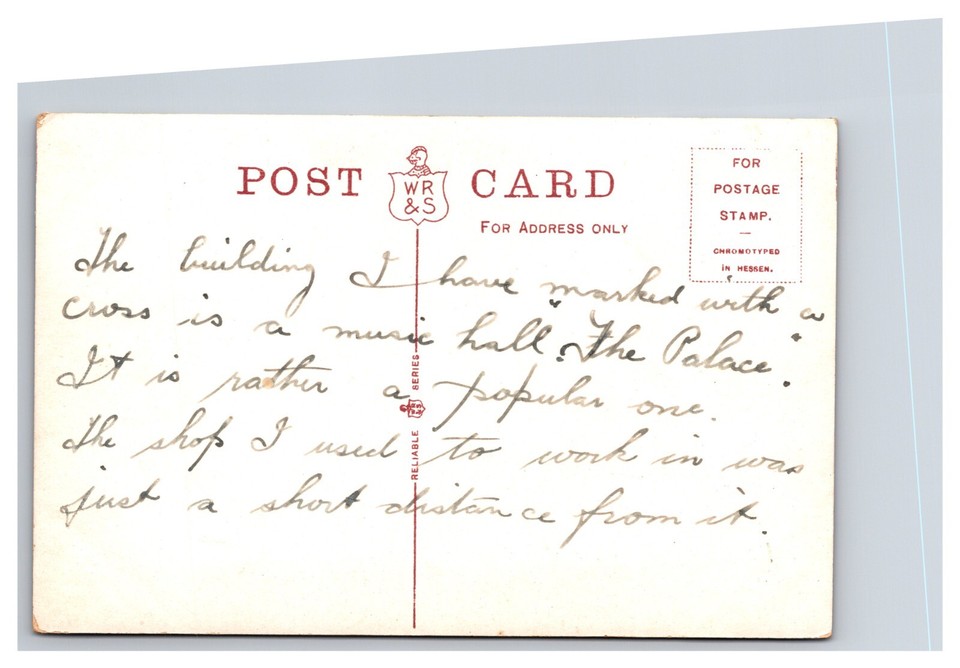 POST CARD
WR
& S
FOR ADDRESS ONLY
FOR
POSTAGE
STAMP.
CHROMOTYPED
IN HESSEN.
The building I have marked with a
cross is a music hall. "The Palace".
It is rather a popular one.
The shop I used to work in was
just a short distance from it.
RELIABLE SERIES